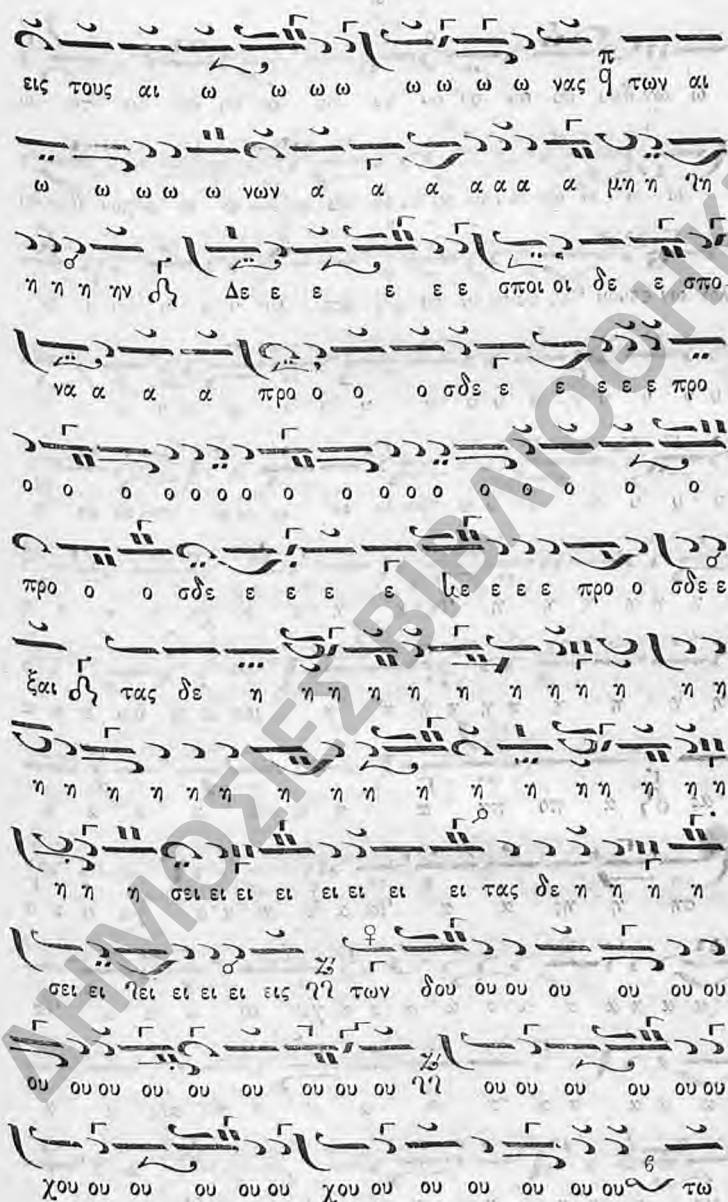 εις τους αι ω ω ω ω ω ω ω ω νας π q των αι
ω ω ω ω ω νων α α α α α α α μη η λη
η η η ην Δε ε ε ε ε ε σποι οι δε ε σπο
να α α α προ ο ο ο σδε ε ε ε ε ε προ
ο ο ο ο ο ο ο ο ο ο ο ο ο ο ο ο ο
προ ο ο σδε ε ε ε ε ε ε ε ε προ ο σδε ε
ξαι τας δε η η η η η η η η η η η η
η η η η η η η η η η η η η η η η
η η η σει ει ει ει ει ει ει ει τας δε η η η η
σει ει ει ει ει ει εις των δου ου ου ου ου ου ου
ου ου ου ου ου ου ου ου ου ου ου ου ου ου ου
χου ου ου ου ου ου χου ου ου ου ου ου ου τω
ΔΗΜΟΣΙΕΣ ΒΙΒΛΙΟΘΗΚΕ